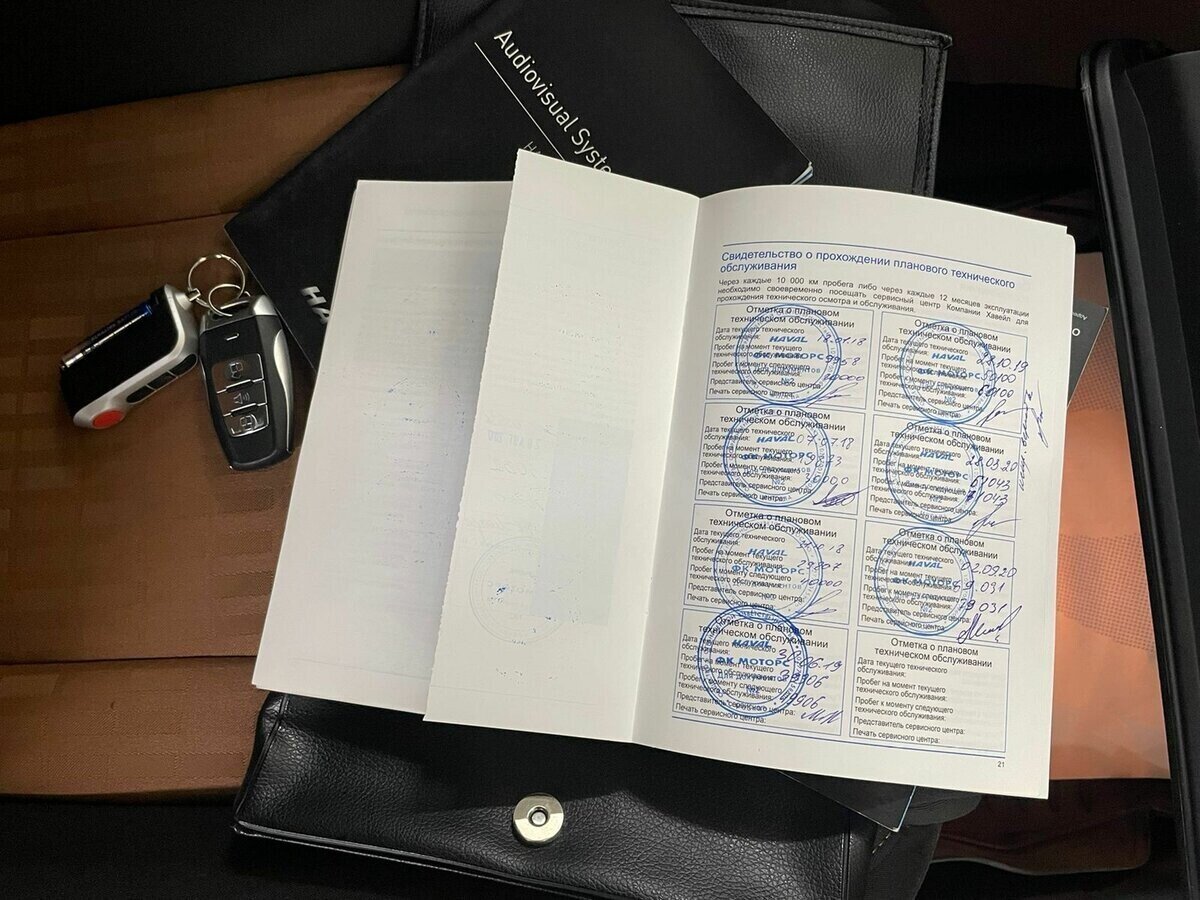 Audiovisual Syste
Свидетельство о прохождении планового технического
обслуживания
Через каждые 10 000 км пробега либо через каждые 12 месяцев эксплуатации
необходимо своевременно посещать сервисный центр Компании Хавейл для
прохождения технического осмотра и обслуживания.
Отметка о плановом
техническом обслуживании
Дата текущего технического
обслуживания:
Пробег на момент текущего
технического обслуживания: 9958
Пробег к моменту следующего
технического обслуживания:
Представитель сервисного центра:
Печать сервисного центра:
HAVAL
ФК МОТОРС
Для документов
№2
Отметка о плановом
техническом обслуживании
Дата текущего технического
обслуживания: 07.07.18
Пробег на момент текущего
технического обслуживания:
Пробег к моменту следующего
технического обслуживания:
Представитель сервисного центра:
Печать сервисного центра:
HAVAL
ФК МОТОРС
Для документов
№2
Отметка о плановом
техническом обслуживании
Дата текущего технического
обслуживания:
Пробег на момент текущего
технического обслуживания:
Пробег к моменту следующего
технического обслуживания: 40000
Представитель сервисного центра:
Печать сервисного центра:
HAVAL
ФК МОТОРС
Для документов
№2
Отметка о плановом
техническом обслуживании
Дата текущего технического
обслуживания: 30.06.19
Пробег на момент текущего
технического обслуживания: 39906
Пробег к моменту следующего
технического обслуживания: 49906
Представитель сервисного центра:
Печать сервисного центра:
HAVAL
ФК МОТОРС
Для документов
№2
Отметка о плановом
техническом обслуживании
Дата текущего технического
обслуживания: 28.10.19
Пробег на момент текущего
технического обслуживания:
Пробег к моменту следующего
технического обслуживания:
Представитель сервисного центра:
Печать сервисного центра:
HAVAL
ФК МОТОРС
Отметка о плановом
техническом обслуживании
Дата текущего технического
обслуживания: 28.03.20
Пробег на момент текущего
технического обслуживания: 61043
Пробег к моменту следующего
технического обслуживания: 71043
Представитель сервисного центра:
Печать сервисного центра:
HAVAL
ФК МОТОРС
Отметка о плановом
техническом обслуживании
Дата текущего технического
обслуживания: 02.09.20
Пробег на момент текущего
технического обслуживания: 69.031
Пробег к моменту следующего
технического обслуживания: 79031
Представитель сервисного центра:
Печать сервисного центра:
HAVAL
ФК МОТОРС
№2
Отметка о плановом
техническом обслуживании
Дата текущего технического
обслуживания:
Пробег на момент текущего
технического обслуживания:
Пробег к моменту следующего
технического обслуживания:
Представитель сервисного центра:
Печать сервисного центра:
21